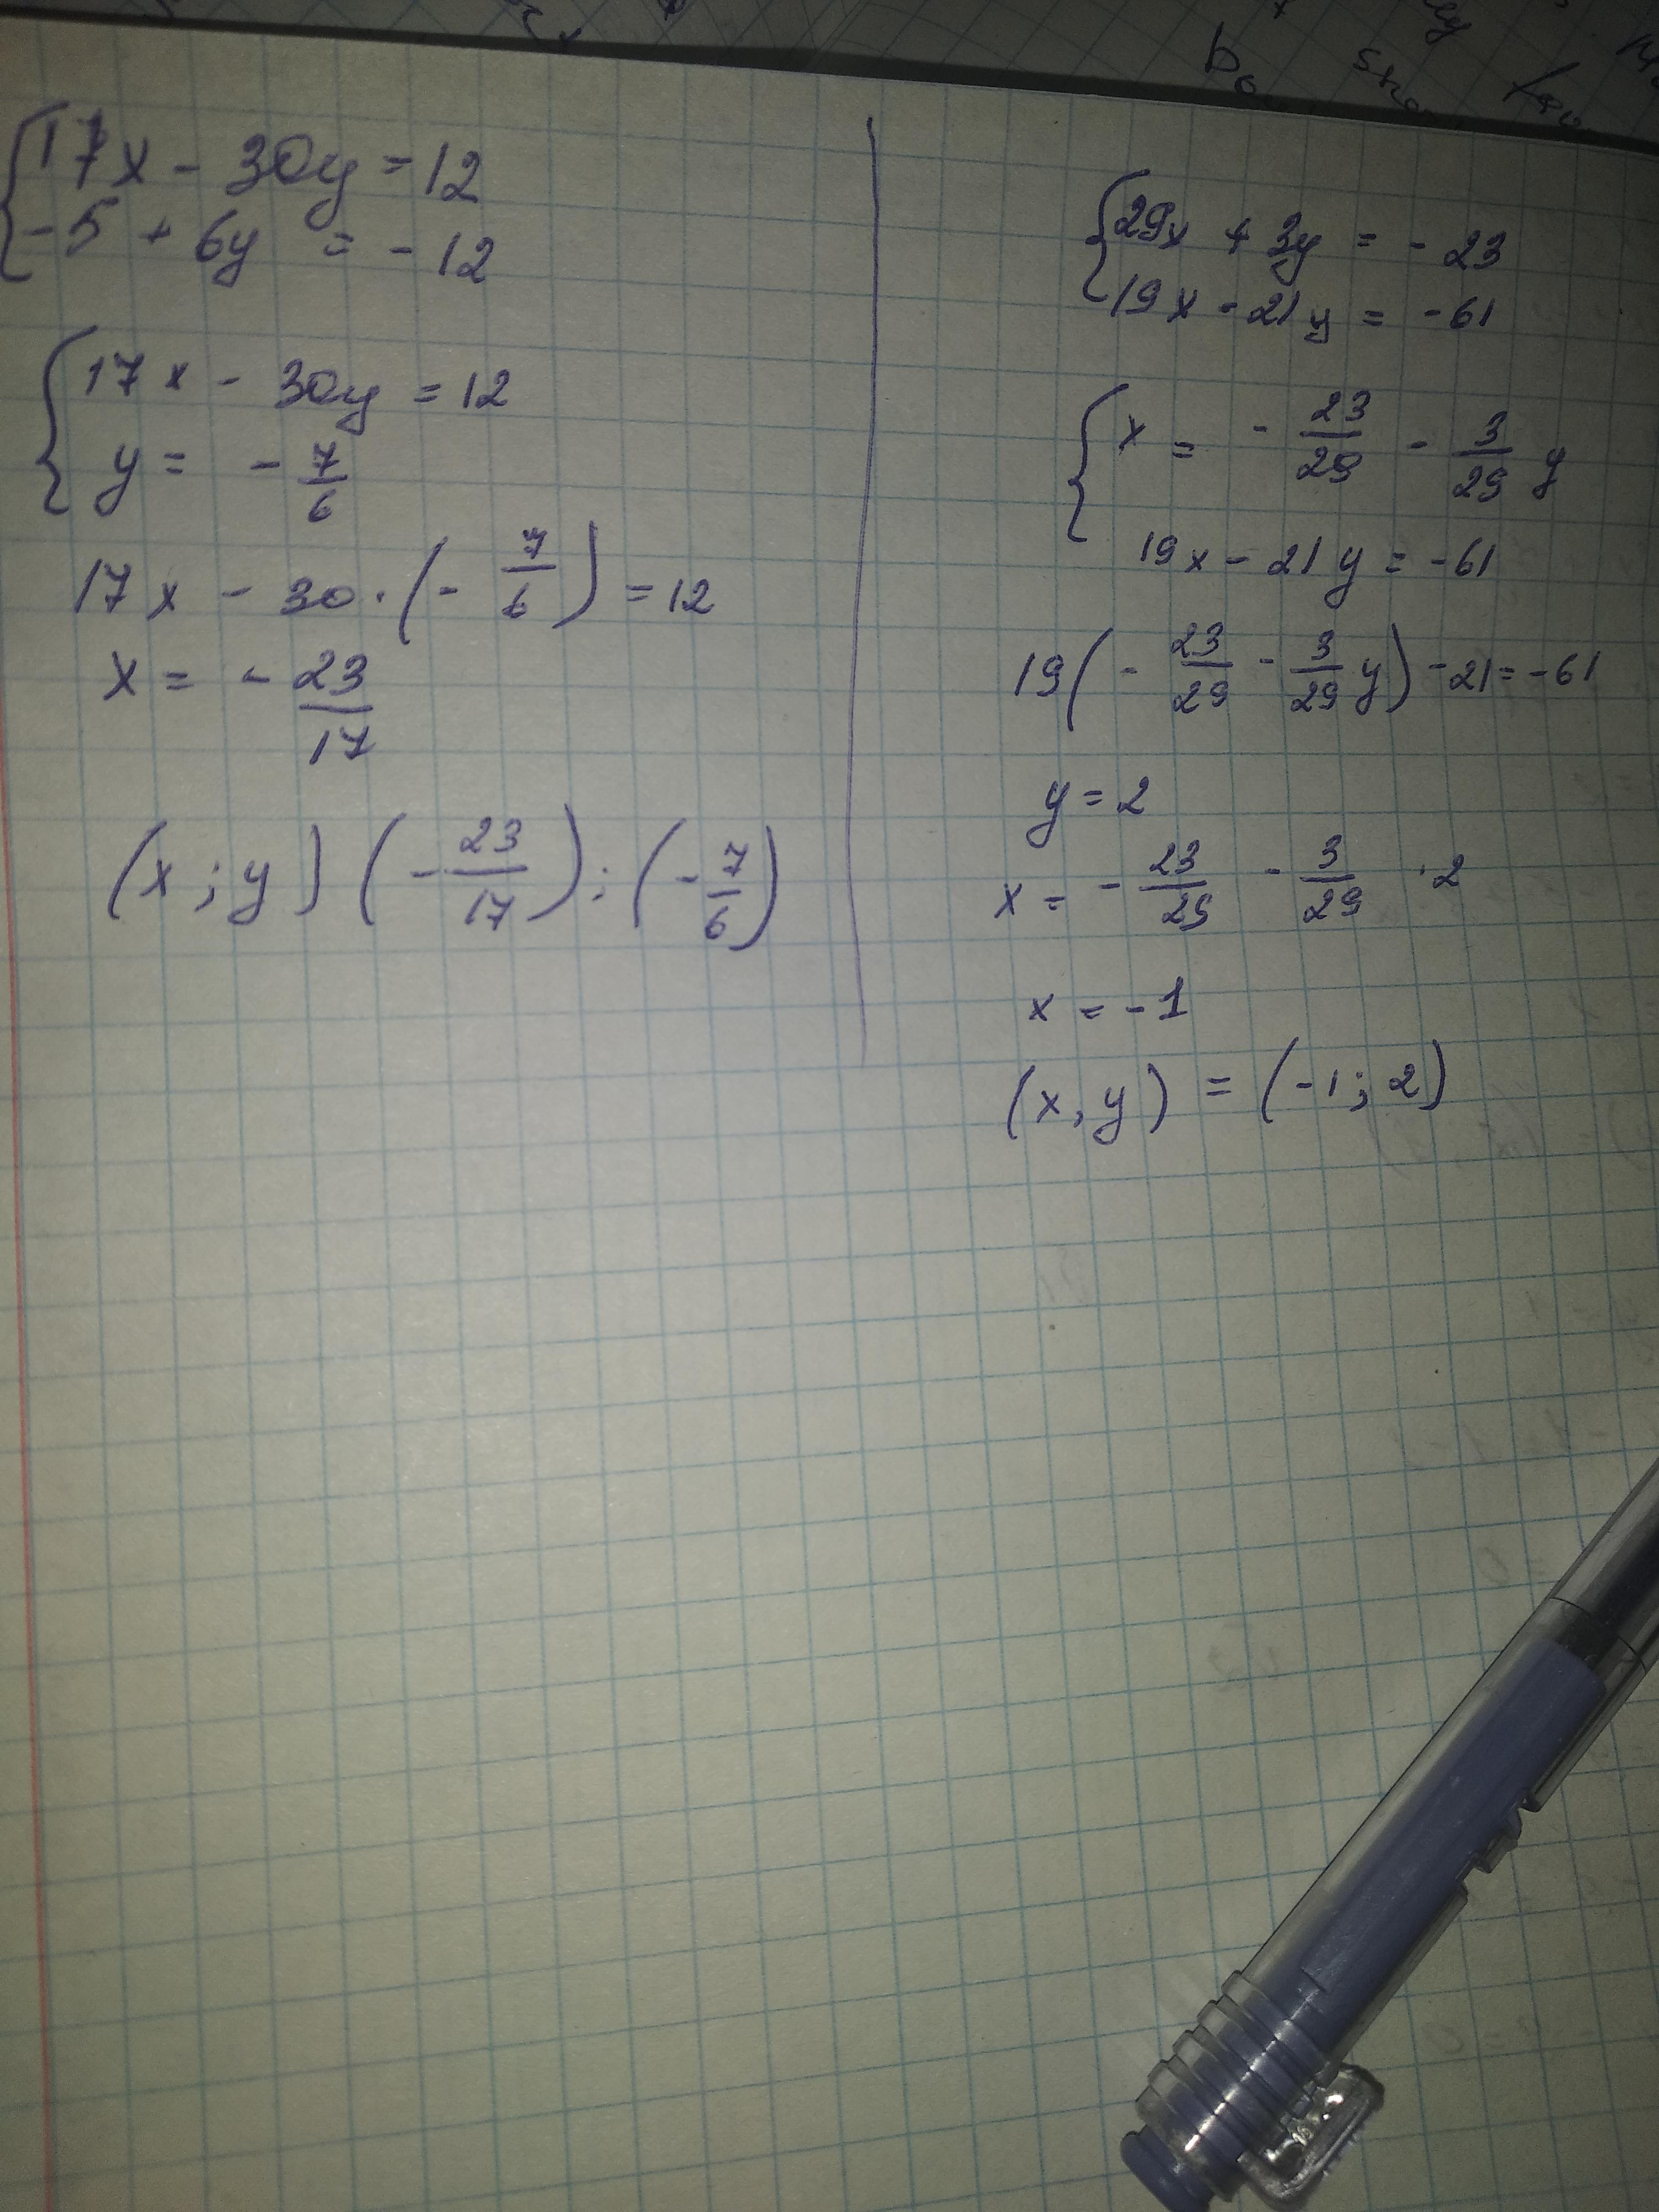 17x - 30y = 12
-5 + 6y = -12
17x - 30y = 12
y = - 7/6
17x - 30 · (- 7/6) = 12
x = - 23/17
(x ; y) (- 23/17) ; (- 7/6)
29x + 3y = - 23
19x - 21y = -61
x = - 23/29 - 3/29 y
19x - 21y = -61
19(- 23/29 - 3/29 y) - 21 = -61
y = 2
x = - 23/29 - 3/29 · 2
x = - 1
(x, y) = (-1; 2)